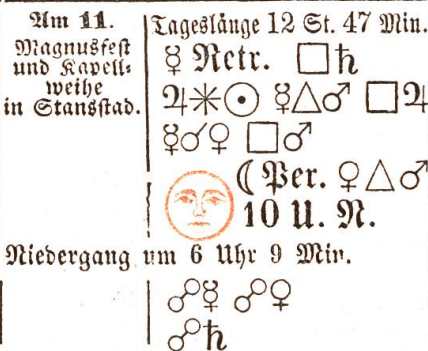 Am 11.
Magnusfest
und Kapell-
weihe
in Stansstad.
Tageslänge 12 St. 47 Min.
☿ Retr. □♄
♃⚹☉ ☿△♂ □♃
☿☌♀ □♂
☾ Per. ♀△♂
10 U. N.
Niedergang um 6 Uhr 9 Min.
☍☿ ☍♀
☍♄